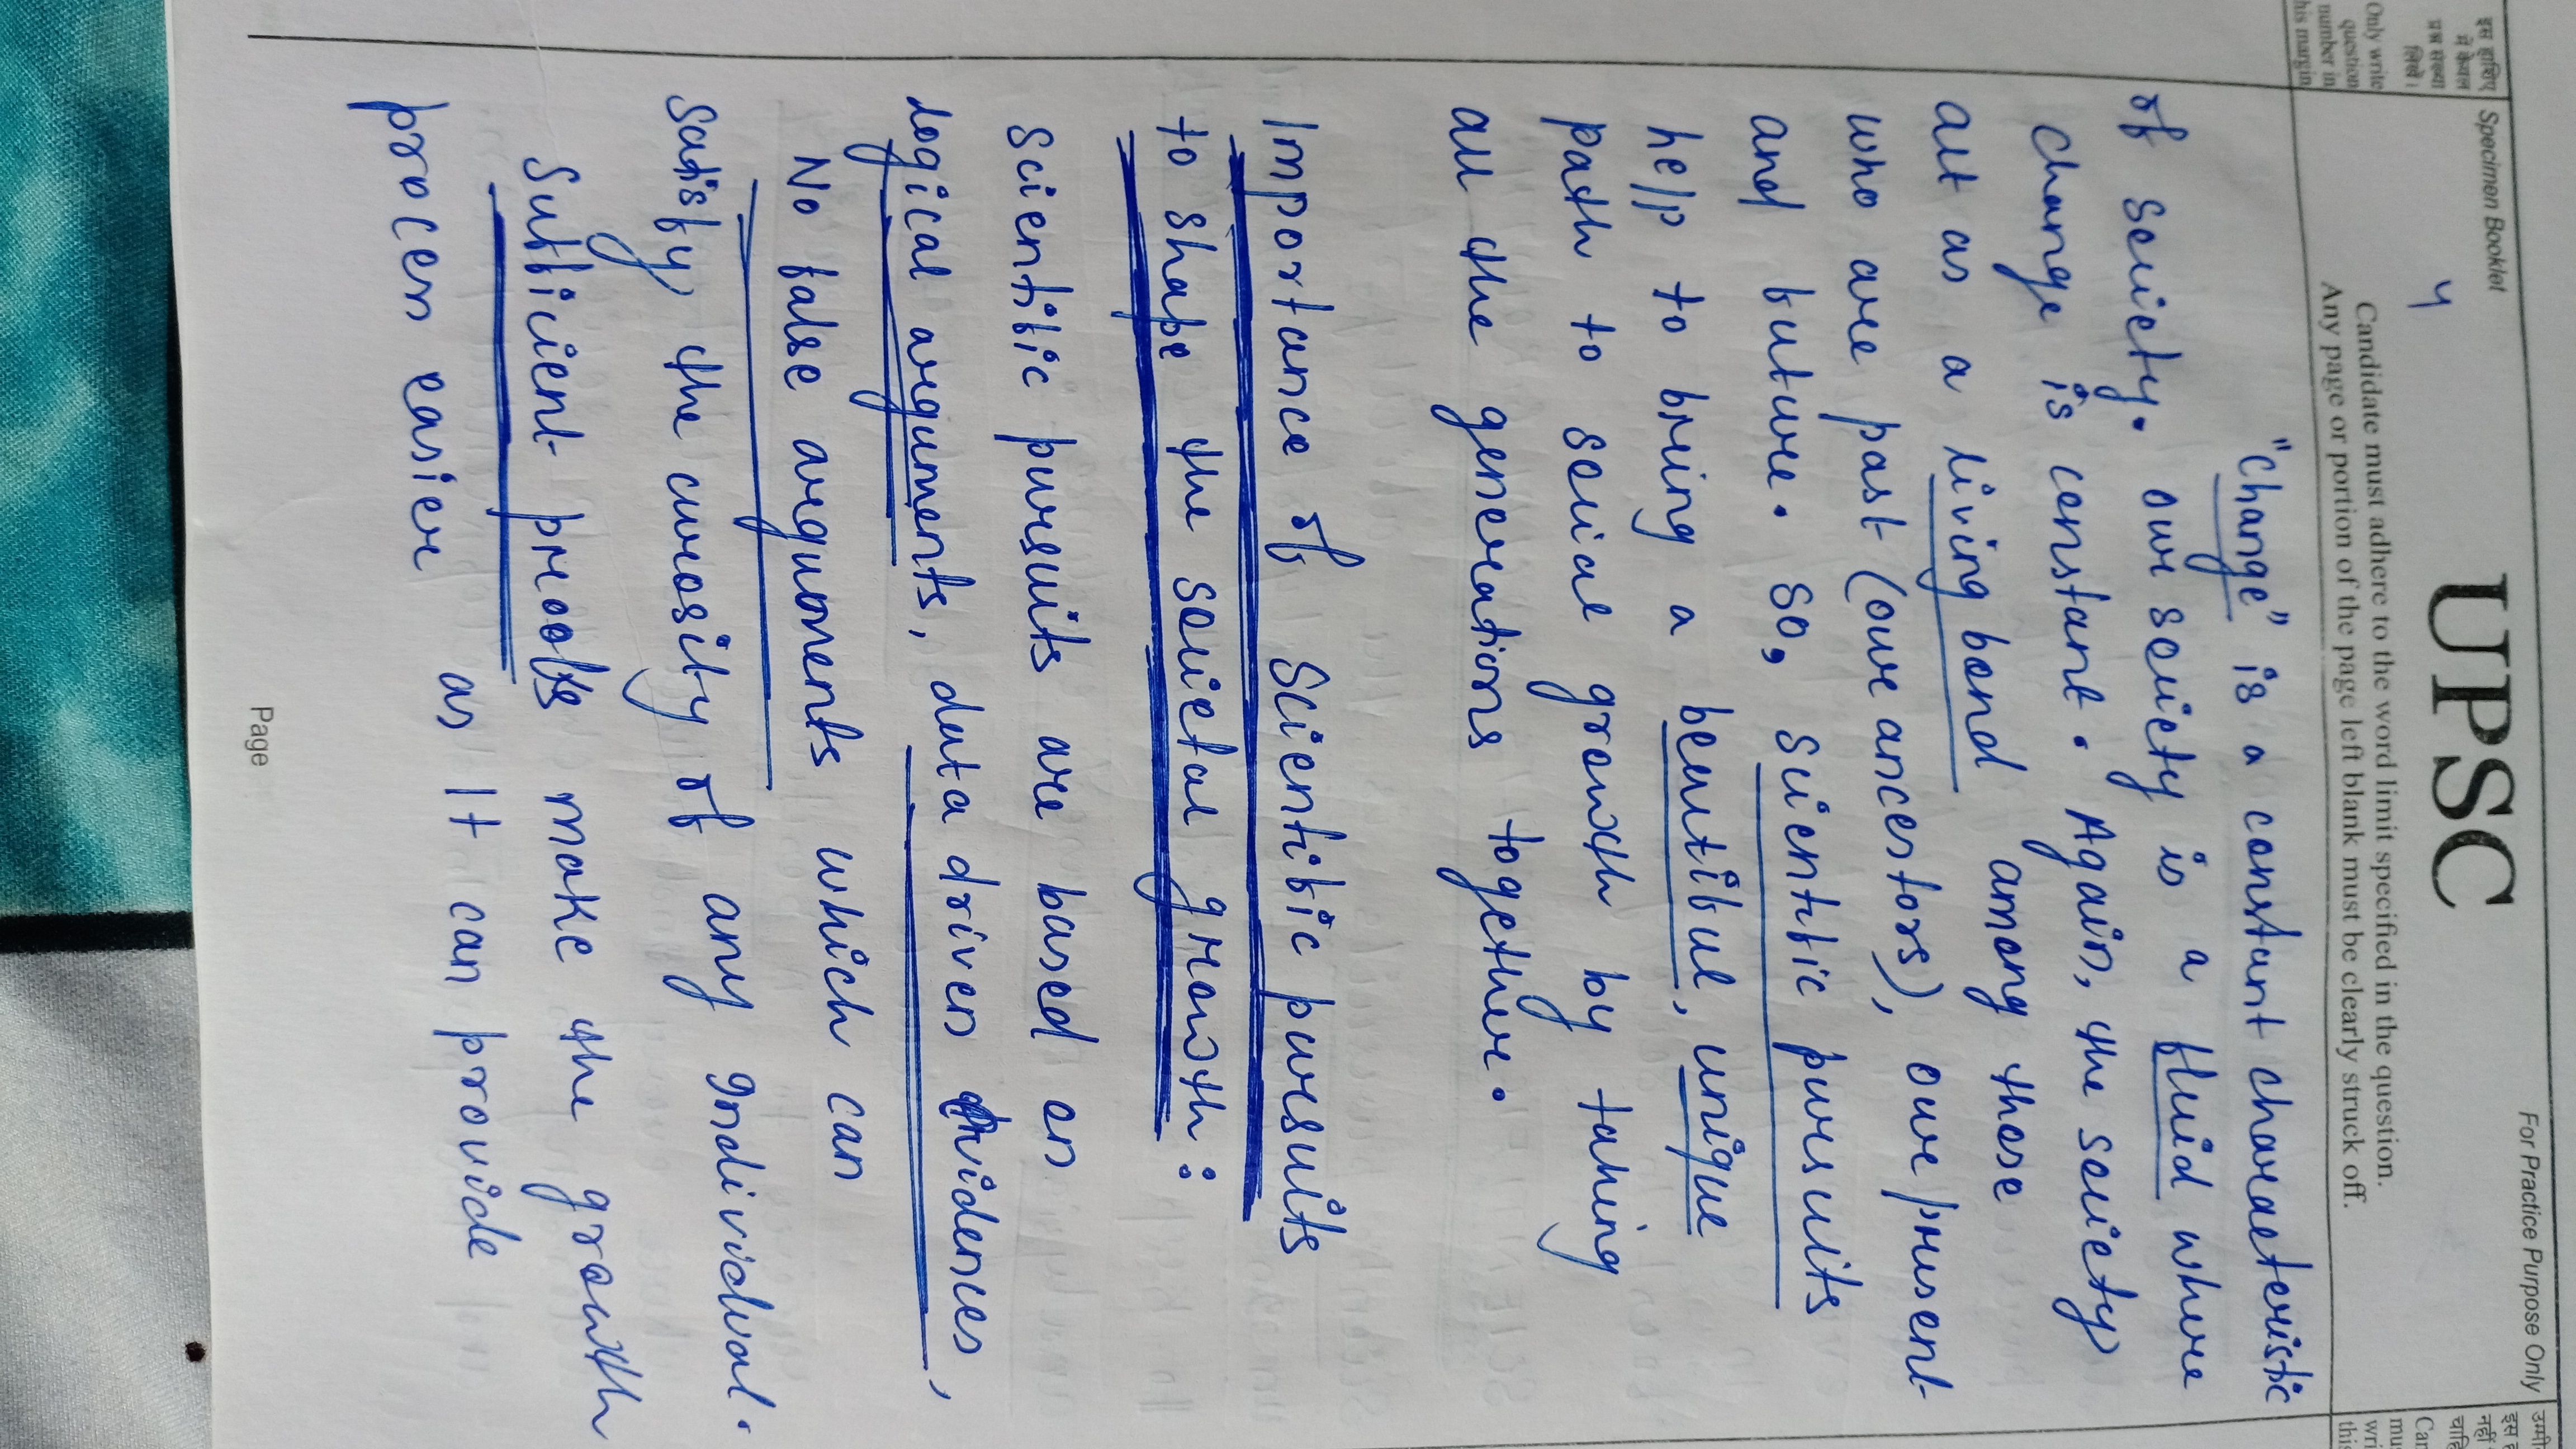 Specimen Booklet
UPSC
For Practice Purpose Only
इस हाशिए
में केवल
प्रश्न संख्या
लिखें।
Only write
question
number in
his margin
4
Candidate must adhere to the word limit specified in the question.
Any page or portion of the page left blank must be clearly struck off.
"change" is a constant characteristic
of society. our society is a fluid where
change is constant. Again, the society
act as a living bond among those
who are past (our ancestors), our present
and future. So, scientific pursuits
help to bring a beutiful, unique
path to social growth by taking
all the generations together.
Importance of Scientific pursuits
to shape the societal growth:
Scientific pursuits are based on
logical arguments, data driven evidences,
No false arguments which can
satisfy the curosity of any Individual.
Sufficient proofs make the growth
process easier as It can provide
Page